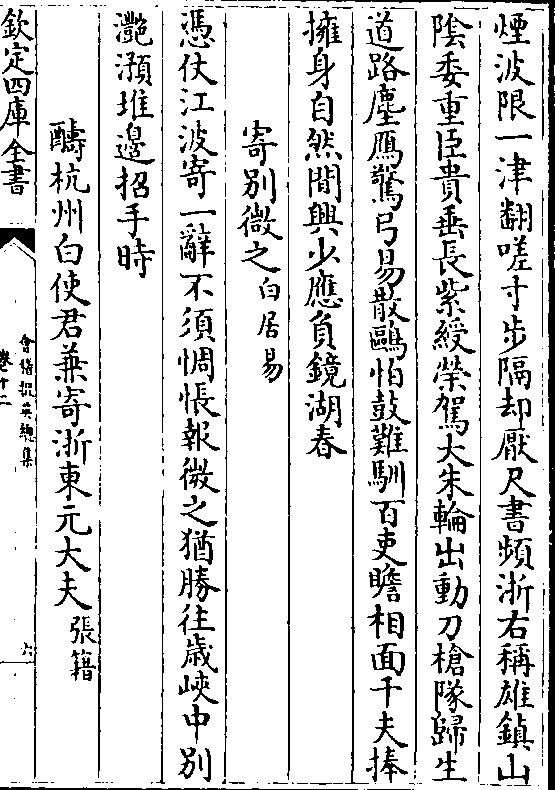 煙波限一津翻嗟寸步隔却厭尺書頻浙右稱雄鎮山
陰委重臣貴垂長紫綬榮駕大朱輪出動刀槍隊歸生
道路塵鴈驚弓易散鷗怕鼓難馴百吏瞻相面千夫捧
擁身自然閒興少應負鏡湖春
寄别微之白居易
憑仗江波寄一辭不須惆悵報微之猶勝往歲峽中别
灧澦堆邉招手時
醻杭州白使君兼寄浙東元大夫張籍
欽定四庫全書
會稽掇英總集
卷十二
六